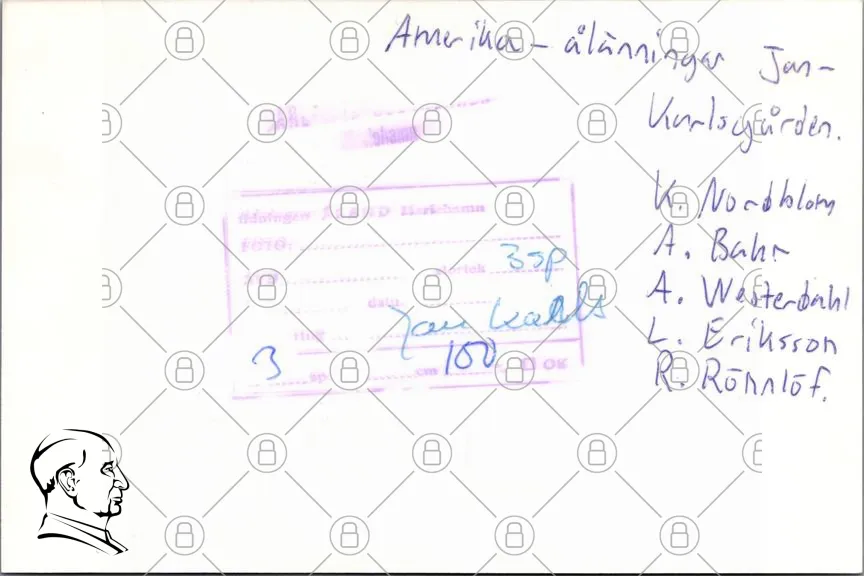 Amerika - ålänningar Jan-
Karlsgården.
K. Nordblom
A. Bahr
A. Westerdahl
L. Eriksson
R. Rönnlöf.
Tidningen ÅLAND Mariehamn
FOTO:
storlek 3 sp
datu
Jan Karls
3 sp cm 100 OK